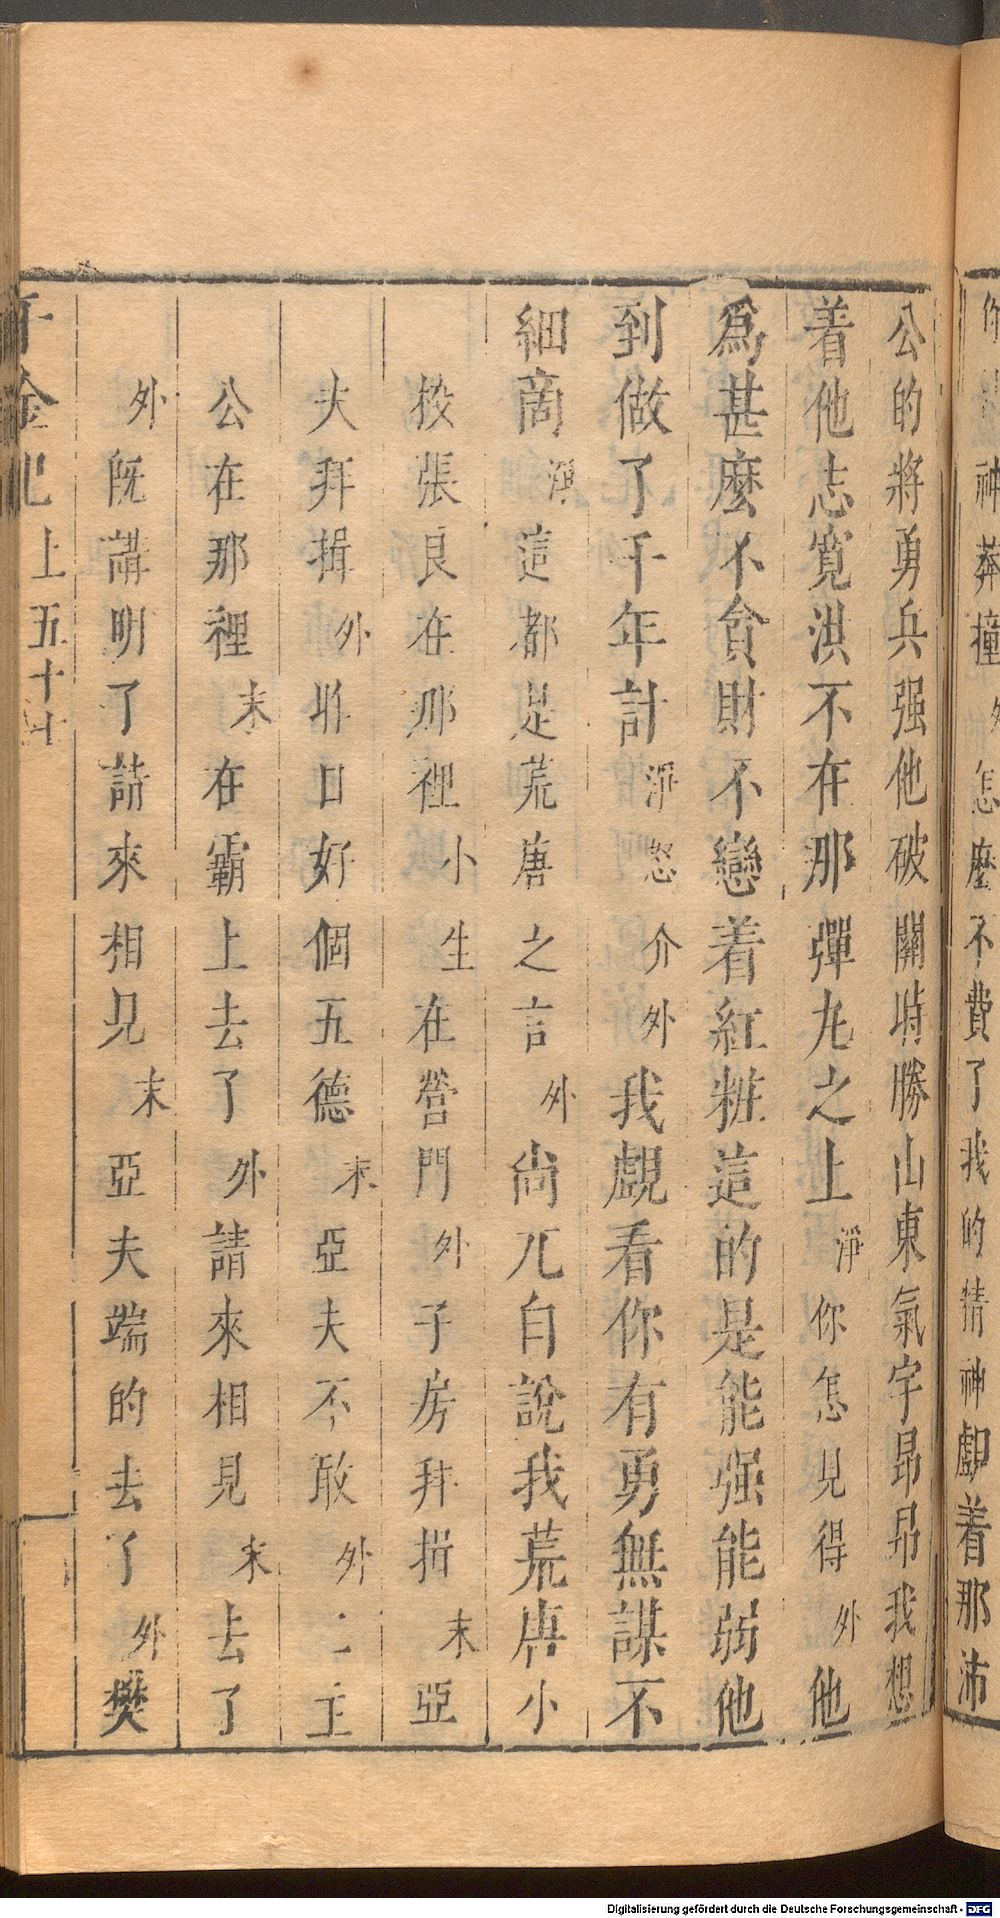 神莽撞外怎麼不費了我的精神覷着那沛
公的將勇兵强他破關時勝山東氣宇昂昂我想
着他志寬洪不在那彈丸之上淨你怎見得外他
爲甚麼不貪財不戀着紅粧這的是能强能弱他
到做了千年計淨怒介外我覷看你有勇無謀不
細商淨這都是荒唐之言外尚兀自說我荒唐小
校張良在那裡小生在營門外子房拜揖末亞
夫拜揖外昨日好個五德末亞夫不敢外二主
公在那裡末在霸上去了外請來相見末去了
外旣講明了請來相見末亞夫端的去了外樊
千金記上五十七
Digitalisierung gefördert durch die Deutsche Forschungsgemeinschaft - DFG